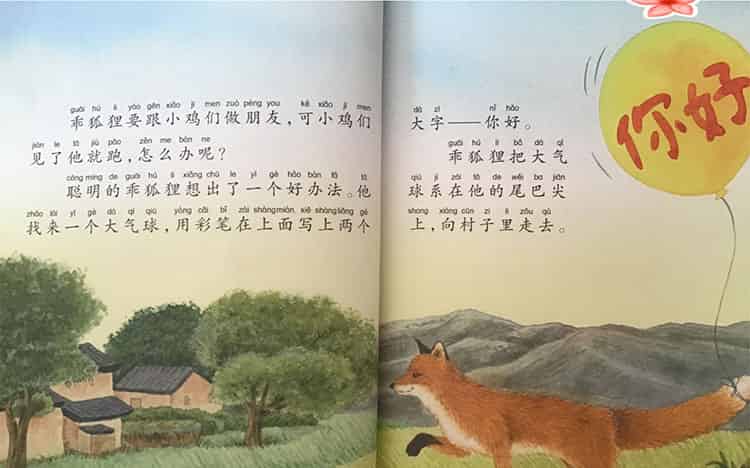 guāi hú li yào gēn xiǎo jī men zuò péng you kě xiǎo jī men
乖狐狸要跟小鸡们做朋友，可小鸡们
jiàn le tā jiù pǎo zěn me bàn ne
见了他就跑，怎么办呢？
cōng míng de guāi hú li xiǎng chū le yí gè hǎo bàn fǎ tā
聪明的乖狐狸想出了一个好办法。他
zhǎo lái yí gè dà qì qiú yòng cǎi bǐ zài shàng miàn xiě shàng liǎng gè
找来一个大气球，用彩笔在上面写上两个
dà zì nǐ hǎo
大字——你好。
guāi hú li bǎ dà qì
乖狐狸把大气
qiú jì zài tā de wěi ba jiān
球系在他的尾巴尖
shang xiàng cūn zi li zǒu qù
上，向村子里走去。
你好